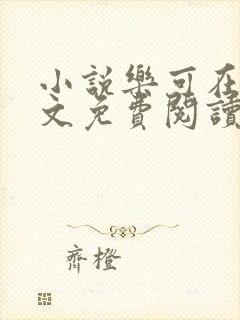 小說樂可在
文免費閱讀
齊橙